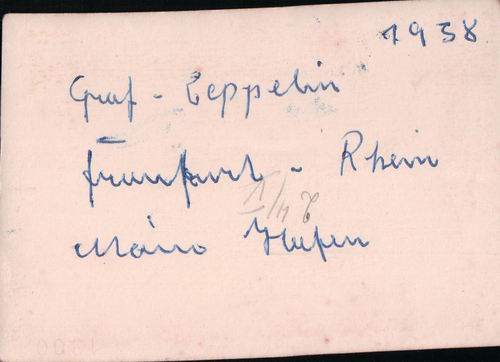 1938
Graf - Zeppelin
Frankfurt - Rhein
Main Hafen